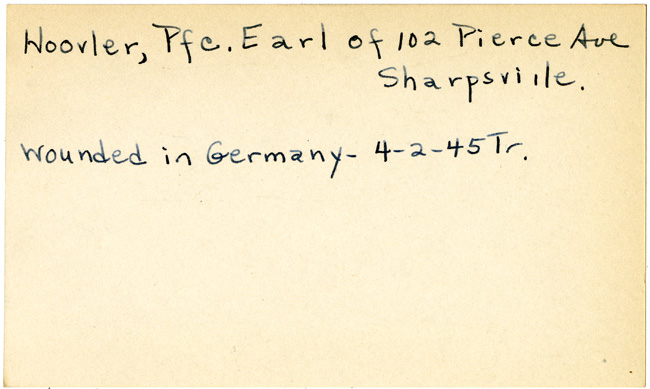 Hoovler, Pfc. Earl of 102 Pierce Ave
Sharpsville.
Wounded in Germany- 4-2-45 Tr.